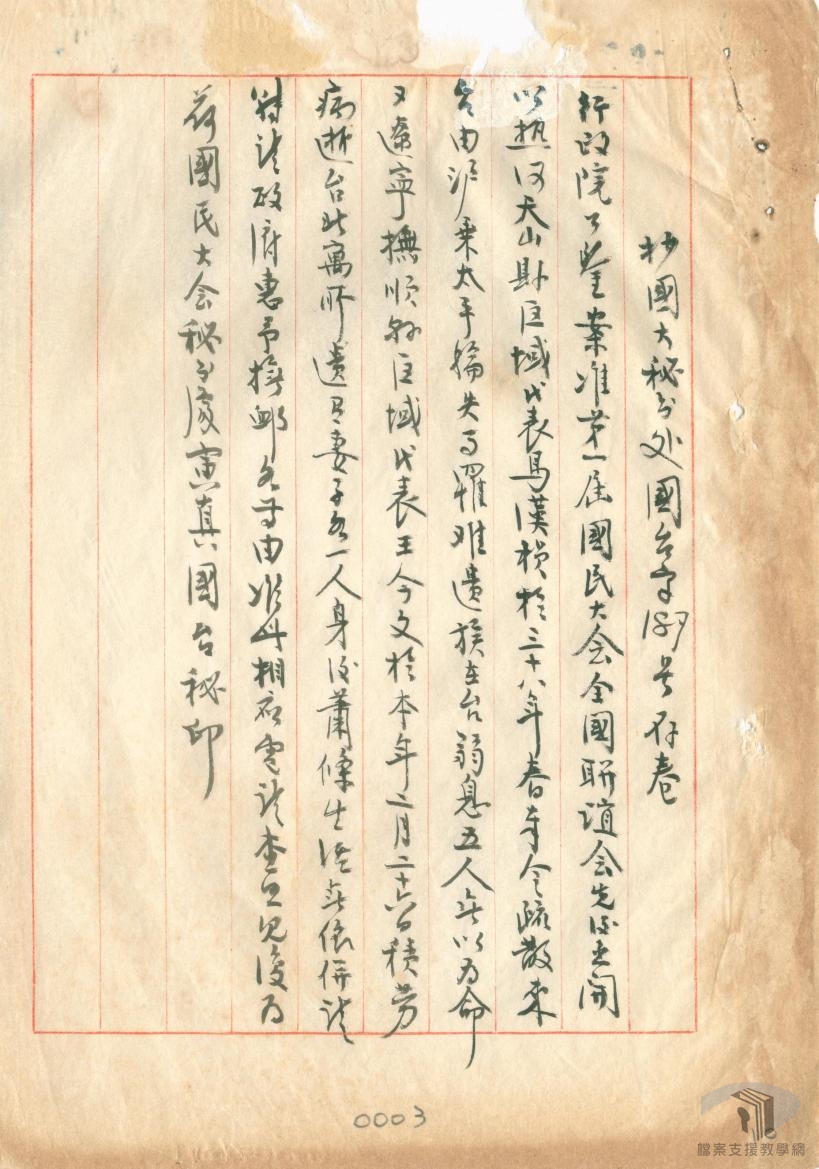 抄國大秘书处國台字189号存卷
行政院公鑒案准苐一届國民大会全國联誼会先后土開
以热河天山縣區域代表馬漢楨於三十八年春奉令疏散來
台由沪乘太平輪失事罹难遺族在台弱息五人無以为命
又遼寧撫順縣區域代表王今文於本年二月二十六日積勞
病逝台北寓所遺有妻子各一人身後蕭條生活無依併請
轉請政府惠予撫卹各等由准此相应電請查照見復为
荷國民大会秘书處寅真國台秘印
0003
檔案支援教學網